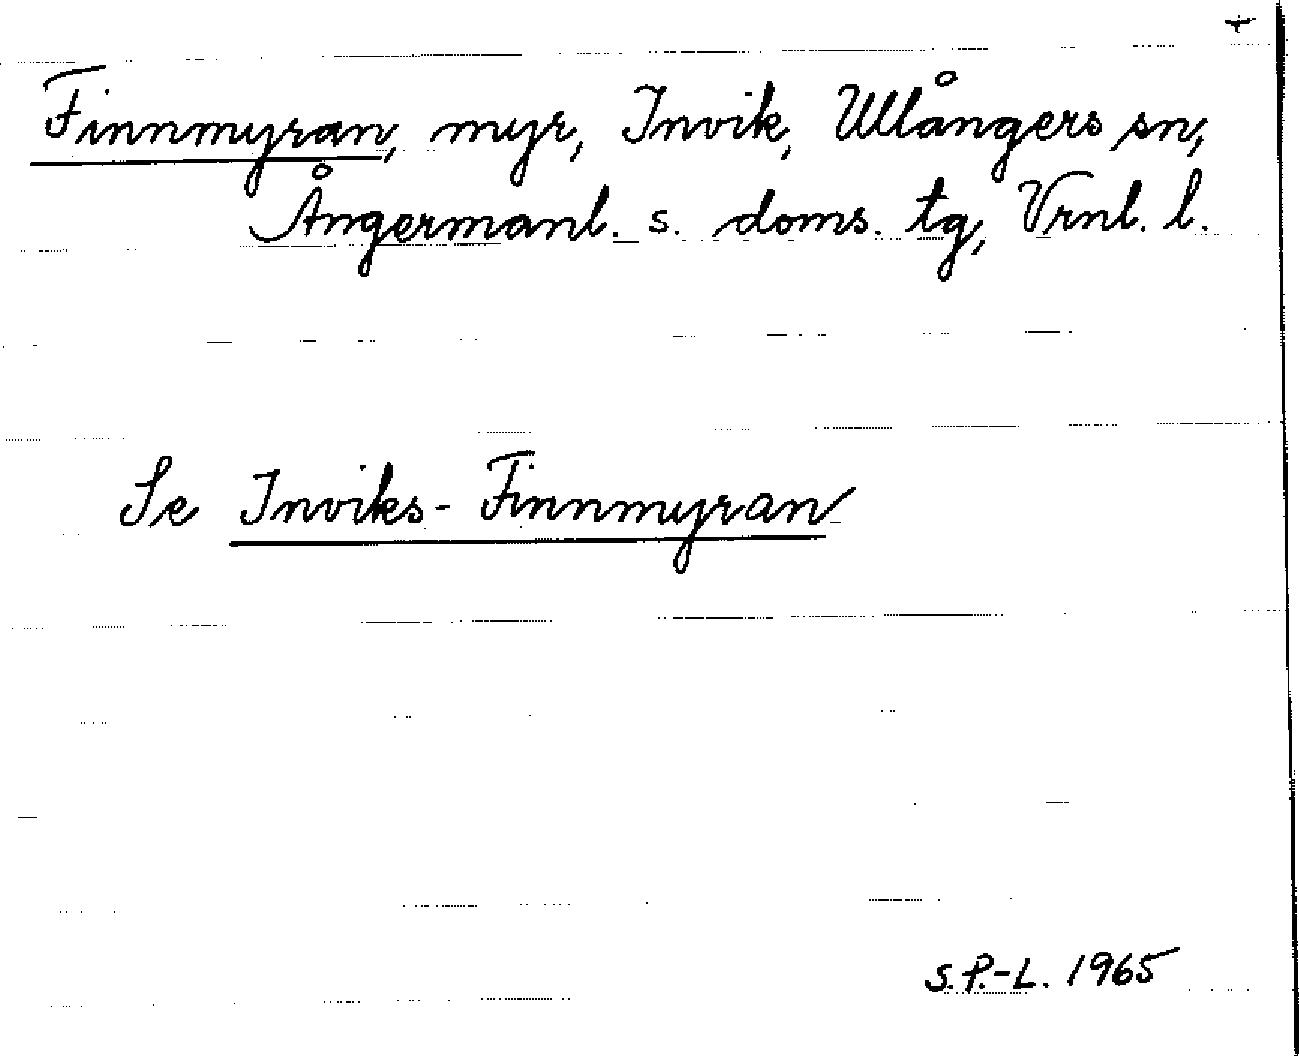 Finnmyran, myr, Invik, Ullångers sn,
Ångermanl. s. doms. tg, Vrnl. l.
Se Inviks-Finnmyran
S.P.-L. 1965